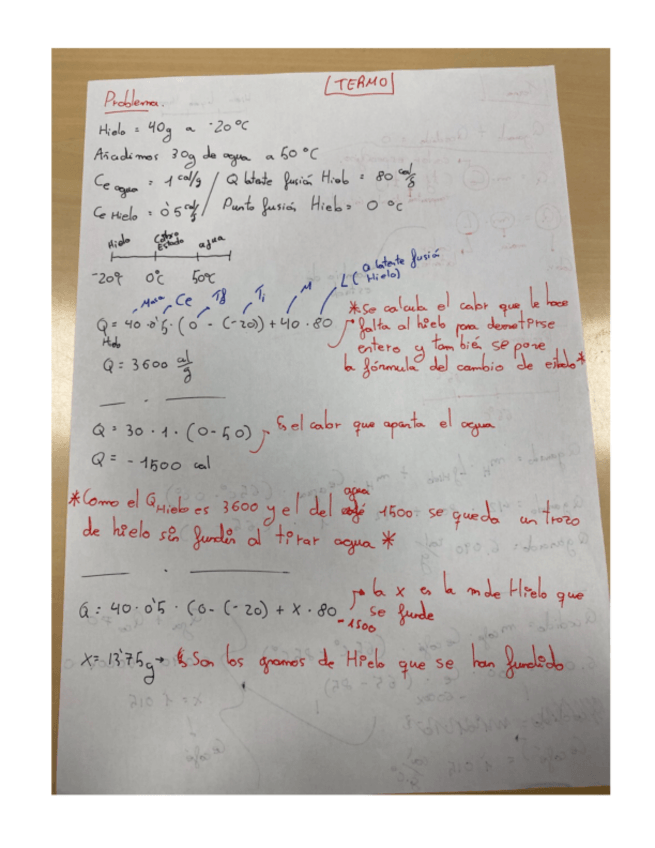 TERMO
Problema.
Hielo = 40g a -20ºC
Añadimos 30g de agua a 50ºC
Ce agua = 1 cal/g / Q latente fusión Hielo = 80 cal/g
Ce Hielo = 0'5 cal/g / Punto fusión Hielo = 0 ºC
Hielo Cambio Estado agua
-20º 0ºC 50ºC
Masa Ce Tf Ti M L (Q latente fusión Hielo)
Q Hielo = 40 · 0'5 · (0 - (-20)) + 40 · 80
Q = 3600 cal/g
*Se calcula el calor que le hace
falta al hielo para derretirse
entero y también se pone
la fórmula del cambio de estado*
Q = 30 · 1 · (0-50) Es el calor que aporta el agua
Q = -1500 cal
*Como el Q Hielo es 3600 y el del agua 1500 se queda un trozo
de hielo sin fundir al tirar agua *
Q = 40 · 0'5 · (0 - (-20) + x · 80
-1500
la x es la m de Hielo que
se funde
x = 13'75g → Son los gramos de Hielo que se han fundido